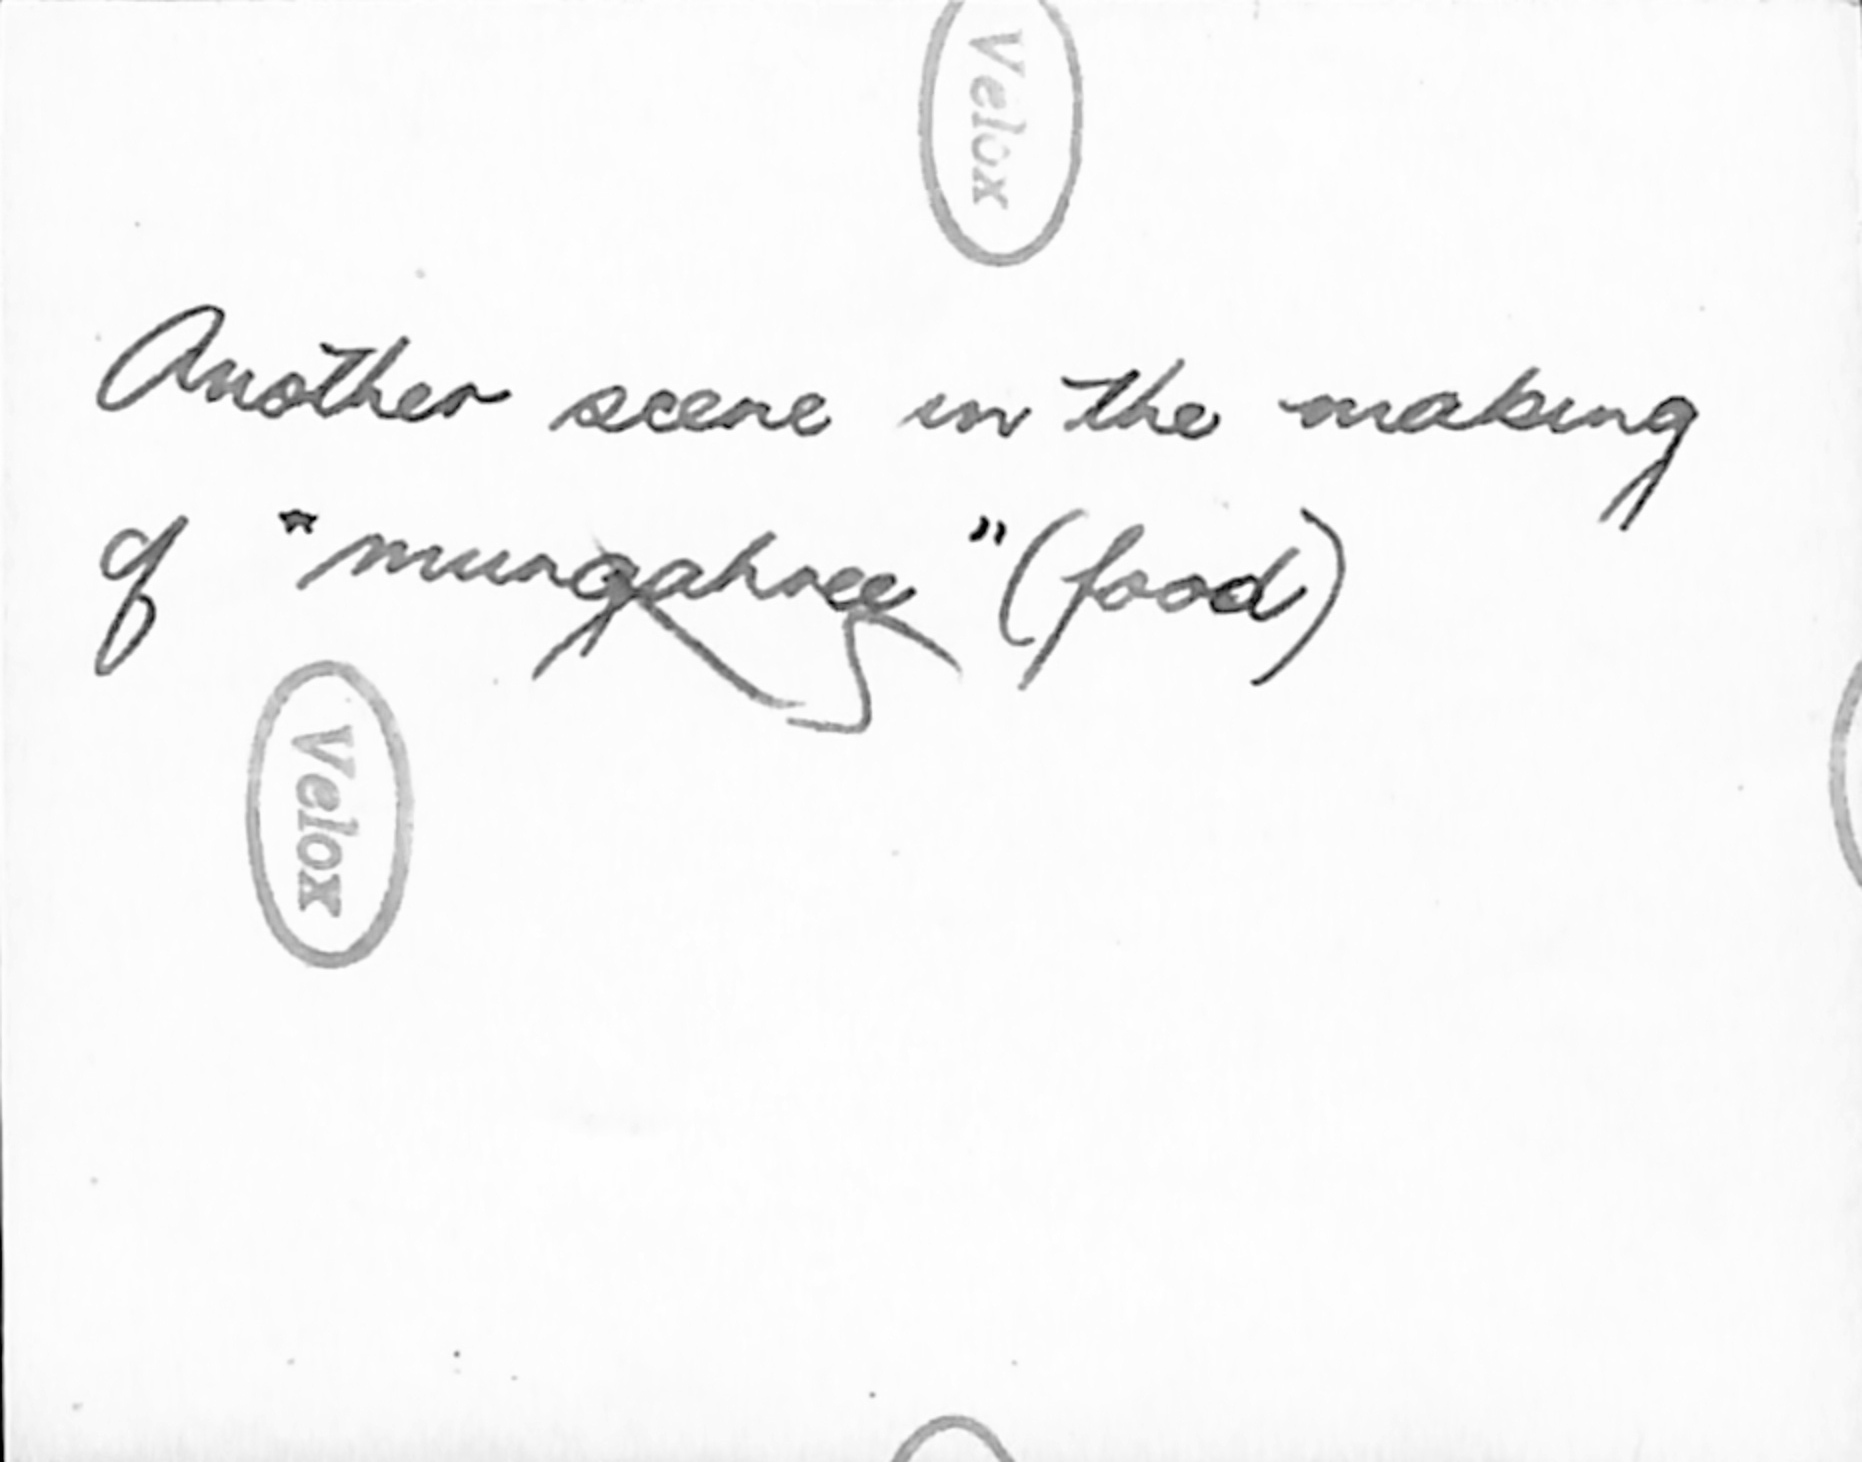 Velox
Another scene in the making
of "mungahree" (food)
Velox